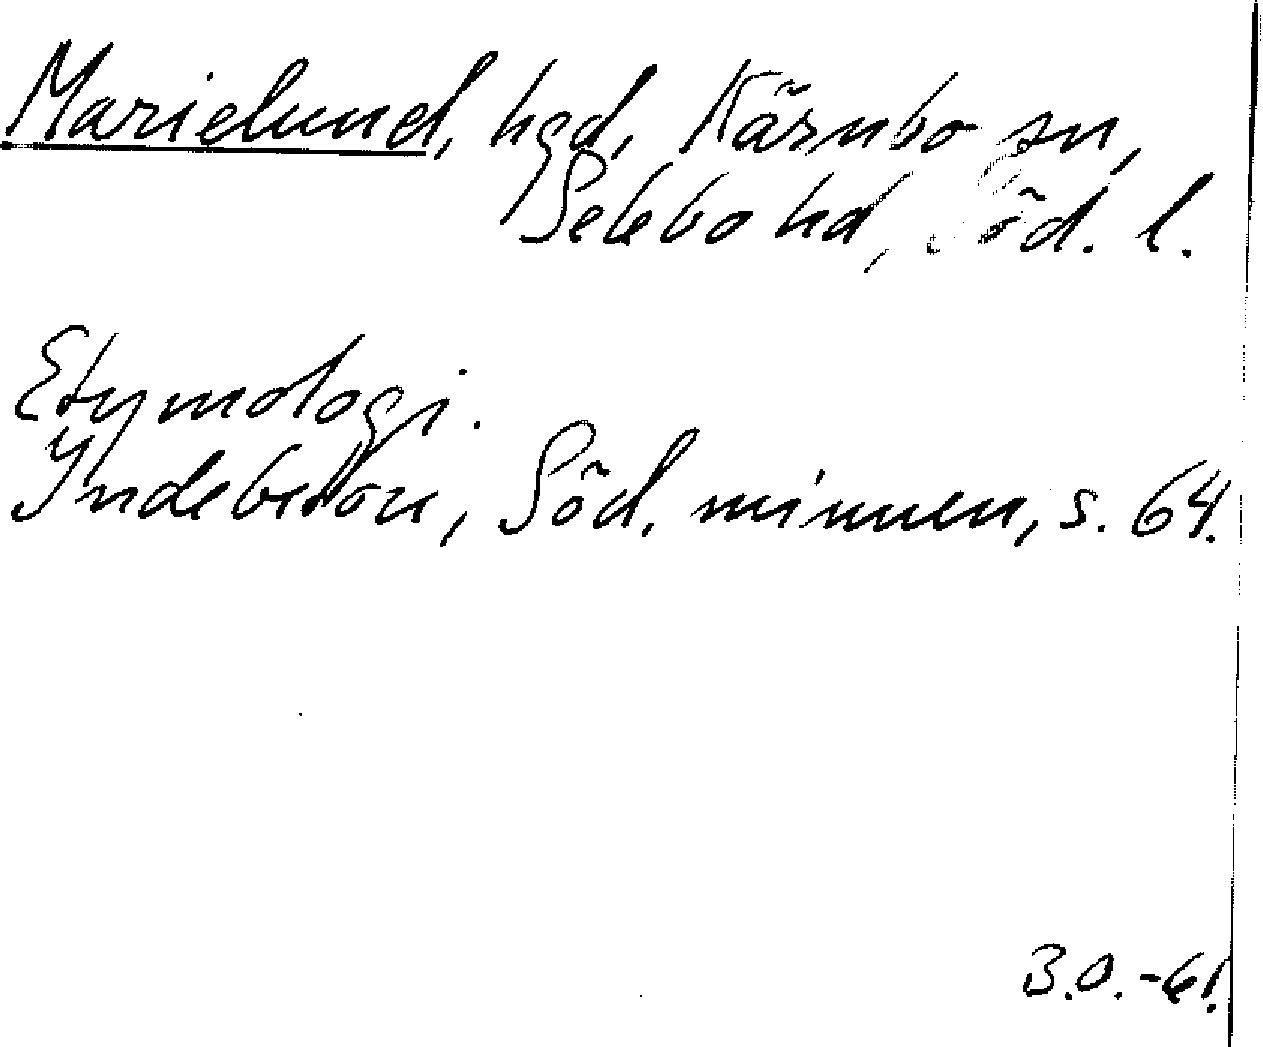 Marielund, hgd, Kärnbo sn,
Selebo hd, Söd. l.
Etymologi.
Indebetou, Söd. minnen, s. 64.
B.O.-61.